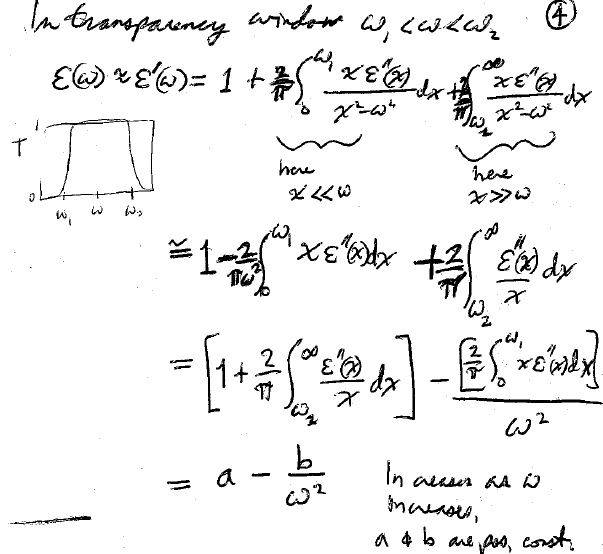 In transparency window ω₁ < ω < ω₂ ④
ε(ω) ≈ ε'(ω) = 1 + 2/π ∫₀^ω₁ xε''(x)/(x²-ω²) dx + 2/π ∫_ω₂^∞ xε''(x)/(x²-ω²) dx
T 1
0
ω₁ ω ω₂
here
x << ω
here
x >> ω
≅ 1 - 2/(πω²) ∫₀^ω₁ xε''(x)dx + 2/π ∫_ω₂^∞ ε''(x)/x dx
= [1 + 2/π ∫_ω₂^∞ ε''(x)/x dx] - [2/π ∫₀^ω₁ xε''(x)dx]/ω²
= a - b/ω²
Increases as ω
increases,
a & b are pos. const.